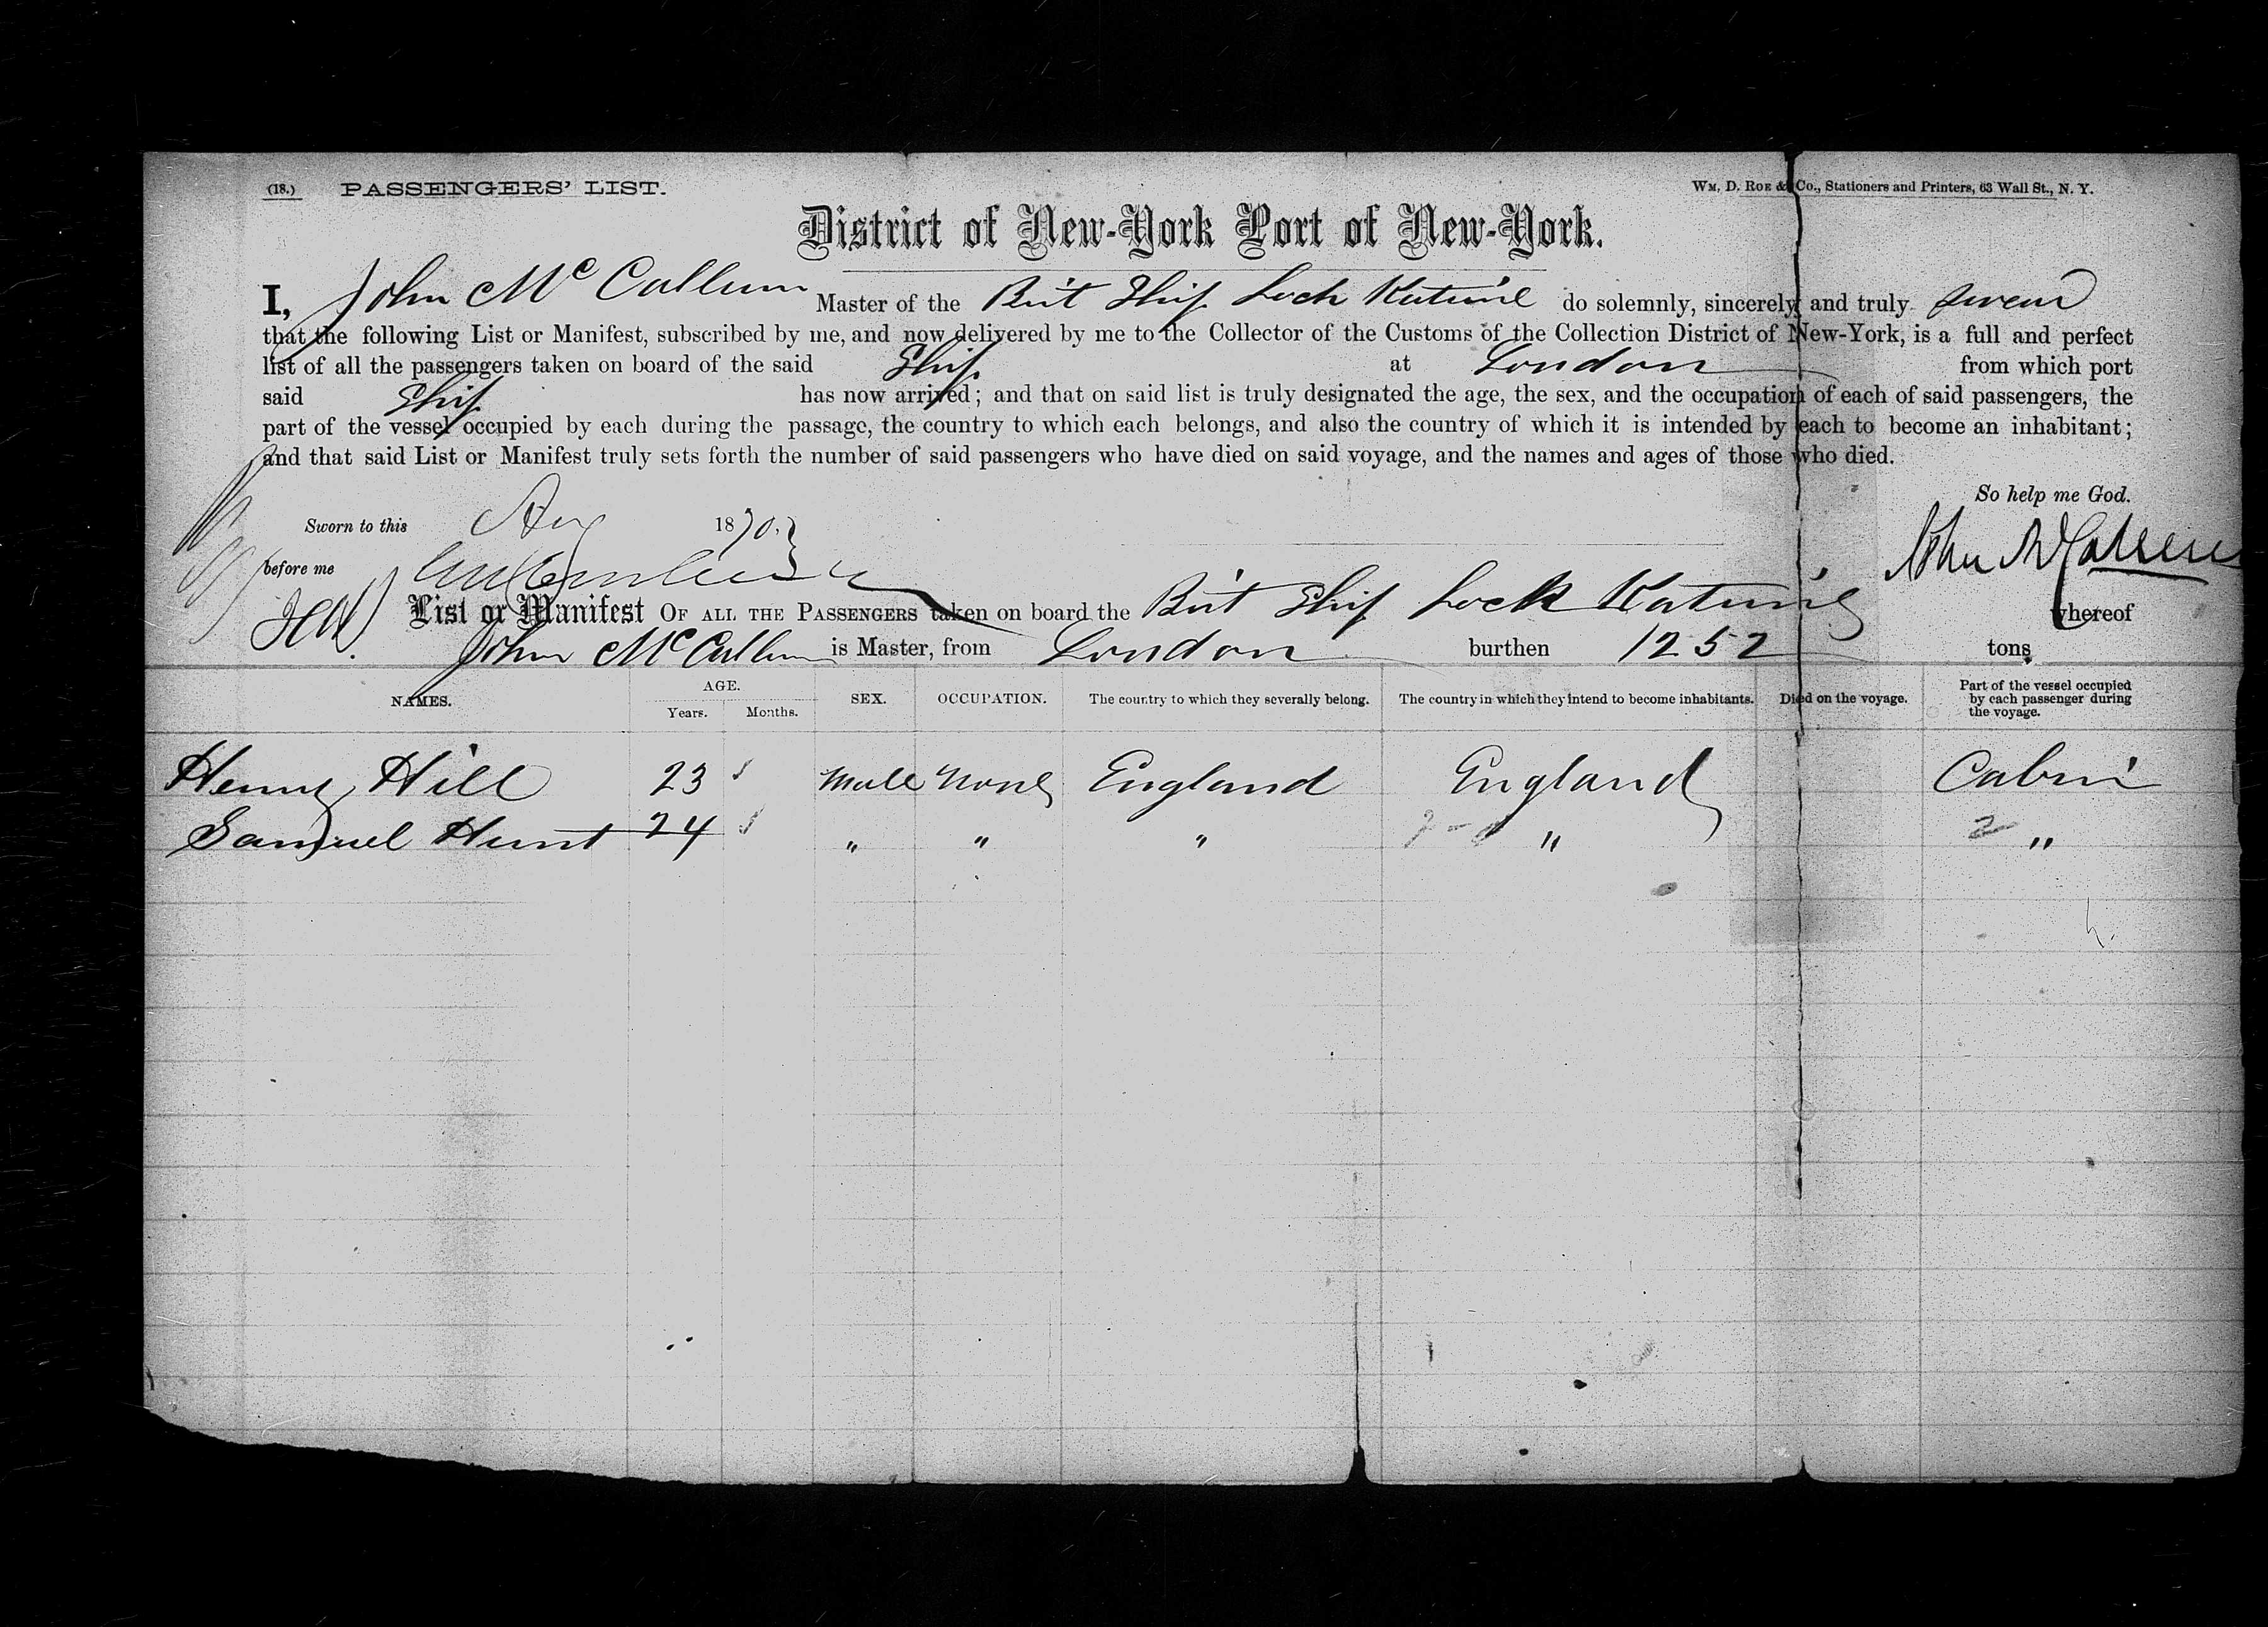 (18.) PASSENGERS' LIST. WM. D. ROE & Co., Stationers and Printers, 63 Wall St., N. Y.
District of New-York Port of New-York.
I, John McCallum Master of the Brit Ship Loch Katrine do solemnly, sincerely and truly swear
that the following List or Manifest, subscribed by me, and now delivered by me to the Collector of the Customs of the Collection District of New-York, is a full and perfect
list of all the passengers taken on board of the said Ship at London from which port
said Ship has now arrived; and that on said list is truly designated the age, the sex, and the occupation of each of said passengers, the
part of the vessel occupied by each during the passage, the country to which each belongs, and also the country of which it is intended by each to become an inhabitant;
and that said List or Manifest truly sets forth the number of said passengers who have died on said voyage, and the names and ages of those who died.
So help me God.
Sworn to this Aug 1870.
before me John McCallum
List or Manifest OF ALL THE PASSENGERS taken on board the Brit Ship Loch Katrine whereof
John McCallum is Master, from London burthen 1252 tons
NAMES. AGE. Years. Months. SEX. OCCUPATION. The country to which they severally belong. The country in which they intend to become inhabitants. Died on the voyage. Part of the vessel occupied by each passenger during the voyage.
Henry Hill 23 Male None England England Cabin
Samuel Hunt 24 " " " " 2 "